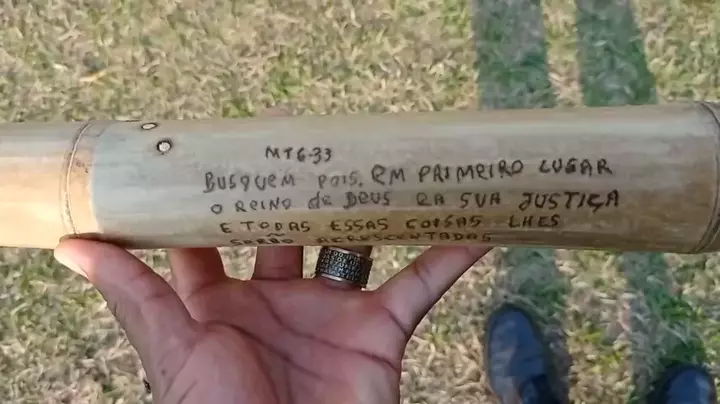 MT6-33
BUSQUEM POIS, EM PRIMEIRO LUGAR
O REINO de DEUS EA SUA JUSTIÇA
E TODAS ESSAS COISAS LHES
SERÃO ACRESCENTADAS